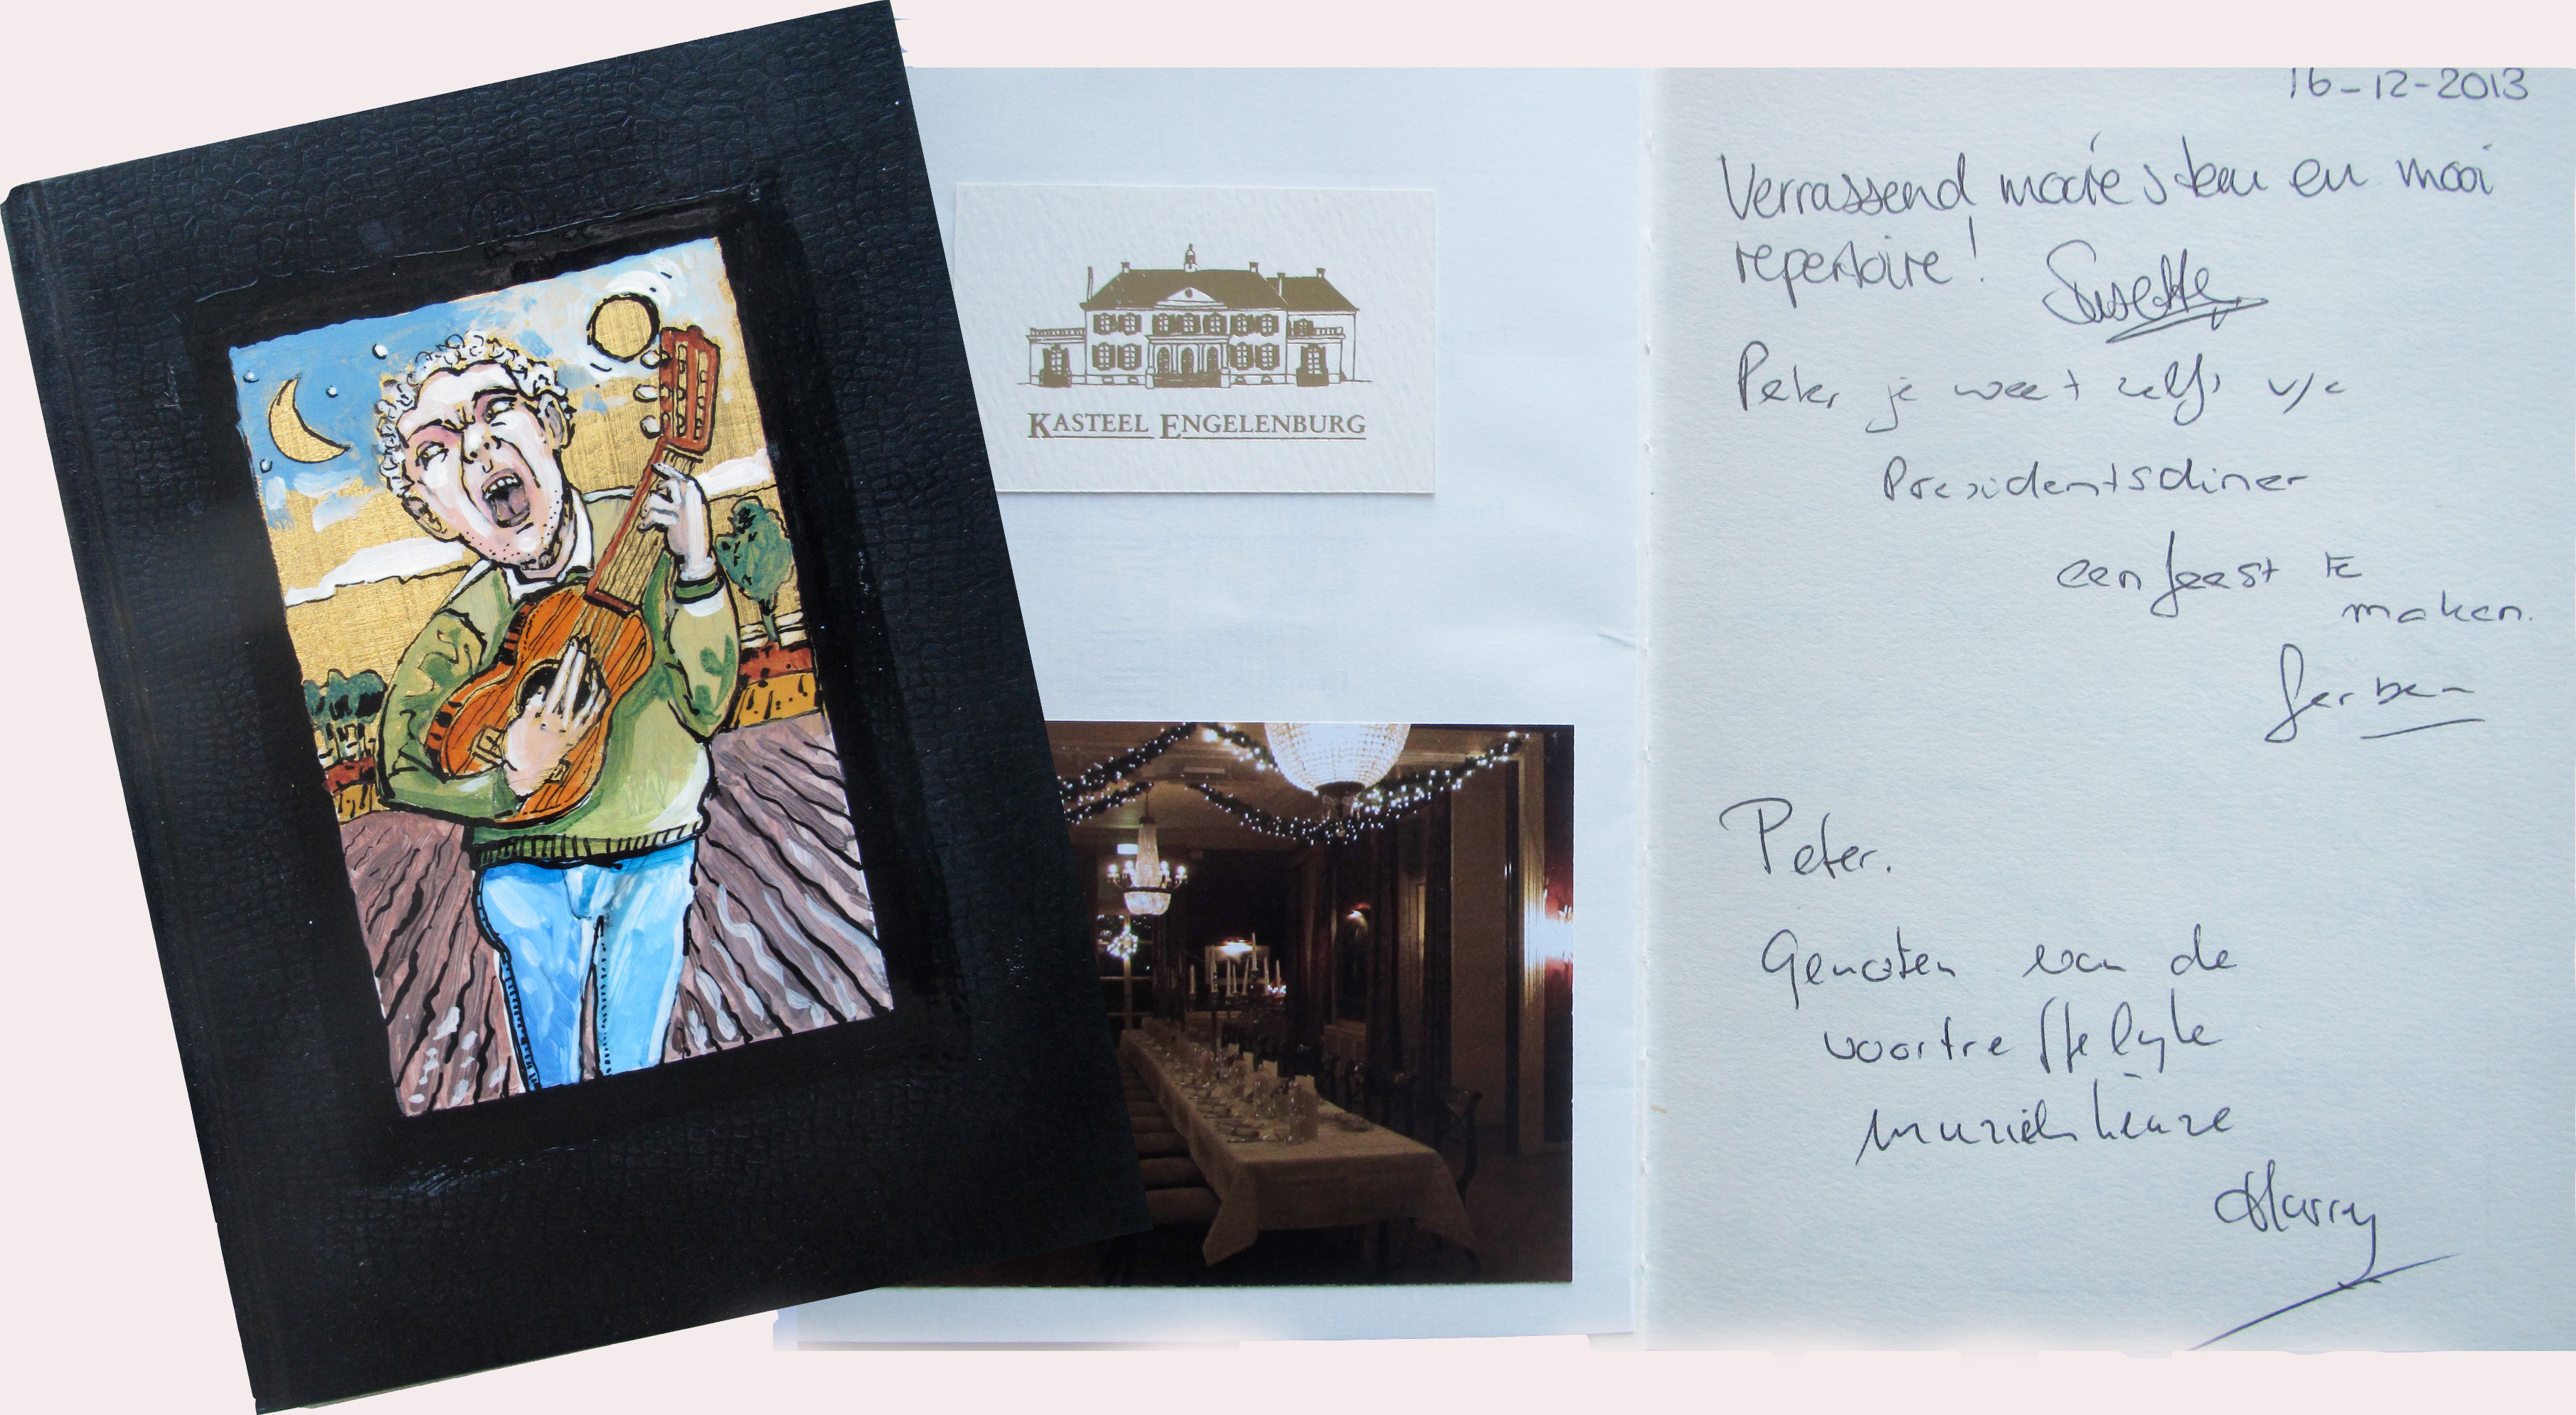 KASTEEL ENGELENBURG
16-12-2013
Verrassend mooie stem en mooi
repertoire!
Susette
Peter je weet zelfs v/e
Presidentsdiner
een feest te
maken.
Gerben
Peter.
Genoten van de
voortreffelyke
muziekkeuze
Harry